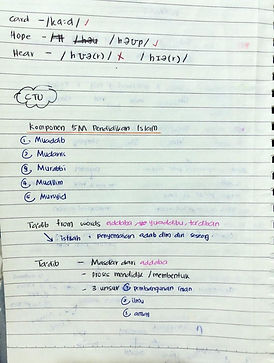 Card - /ka:d/ ✓
Hope - /həʊp/ ✓
Hear - /hʊə(r)/ ✗ /hɪə(r)/
CTU
Komponen 5M Pendidikan Islam
① Muaddib
② Mudarris
③ Murabbi
④ Muallim
⑤ Mursyid
Ta'dib from words addaba, yuaddibu, ta'diban
↳ istilah : penyemaian adab dlm diri seseorg
Ta'dib - Masdar dari addaba
- proses mendidik / membentuk
- 3 unsur ① pembangunan iman
② ilmu
③ amal